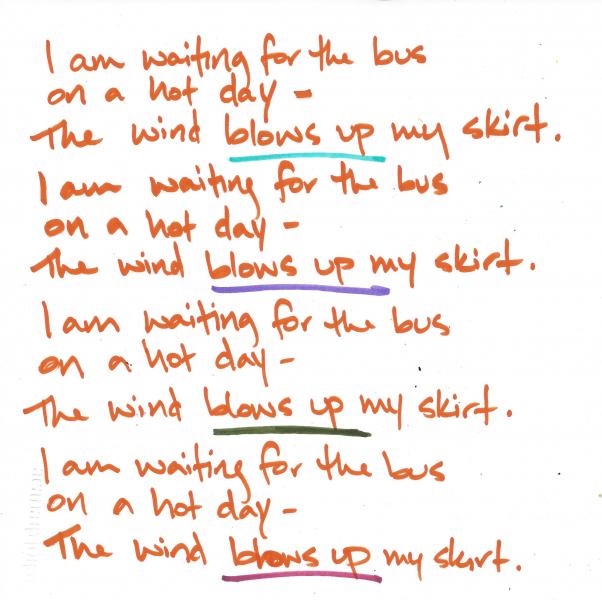 I am waiting for the bus
on a hot day -
The wind blows up my skirt.
I am waiting for the bus
on a hot day -
The wind blows up my skirt.
I am waiting for the bus
on a hot day -
The wind blows up my skirt.
I am waiting for the bus
on a hot day -
The wind blows up my skirt.